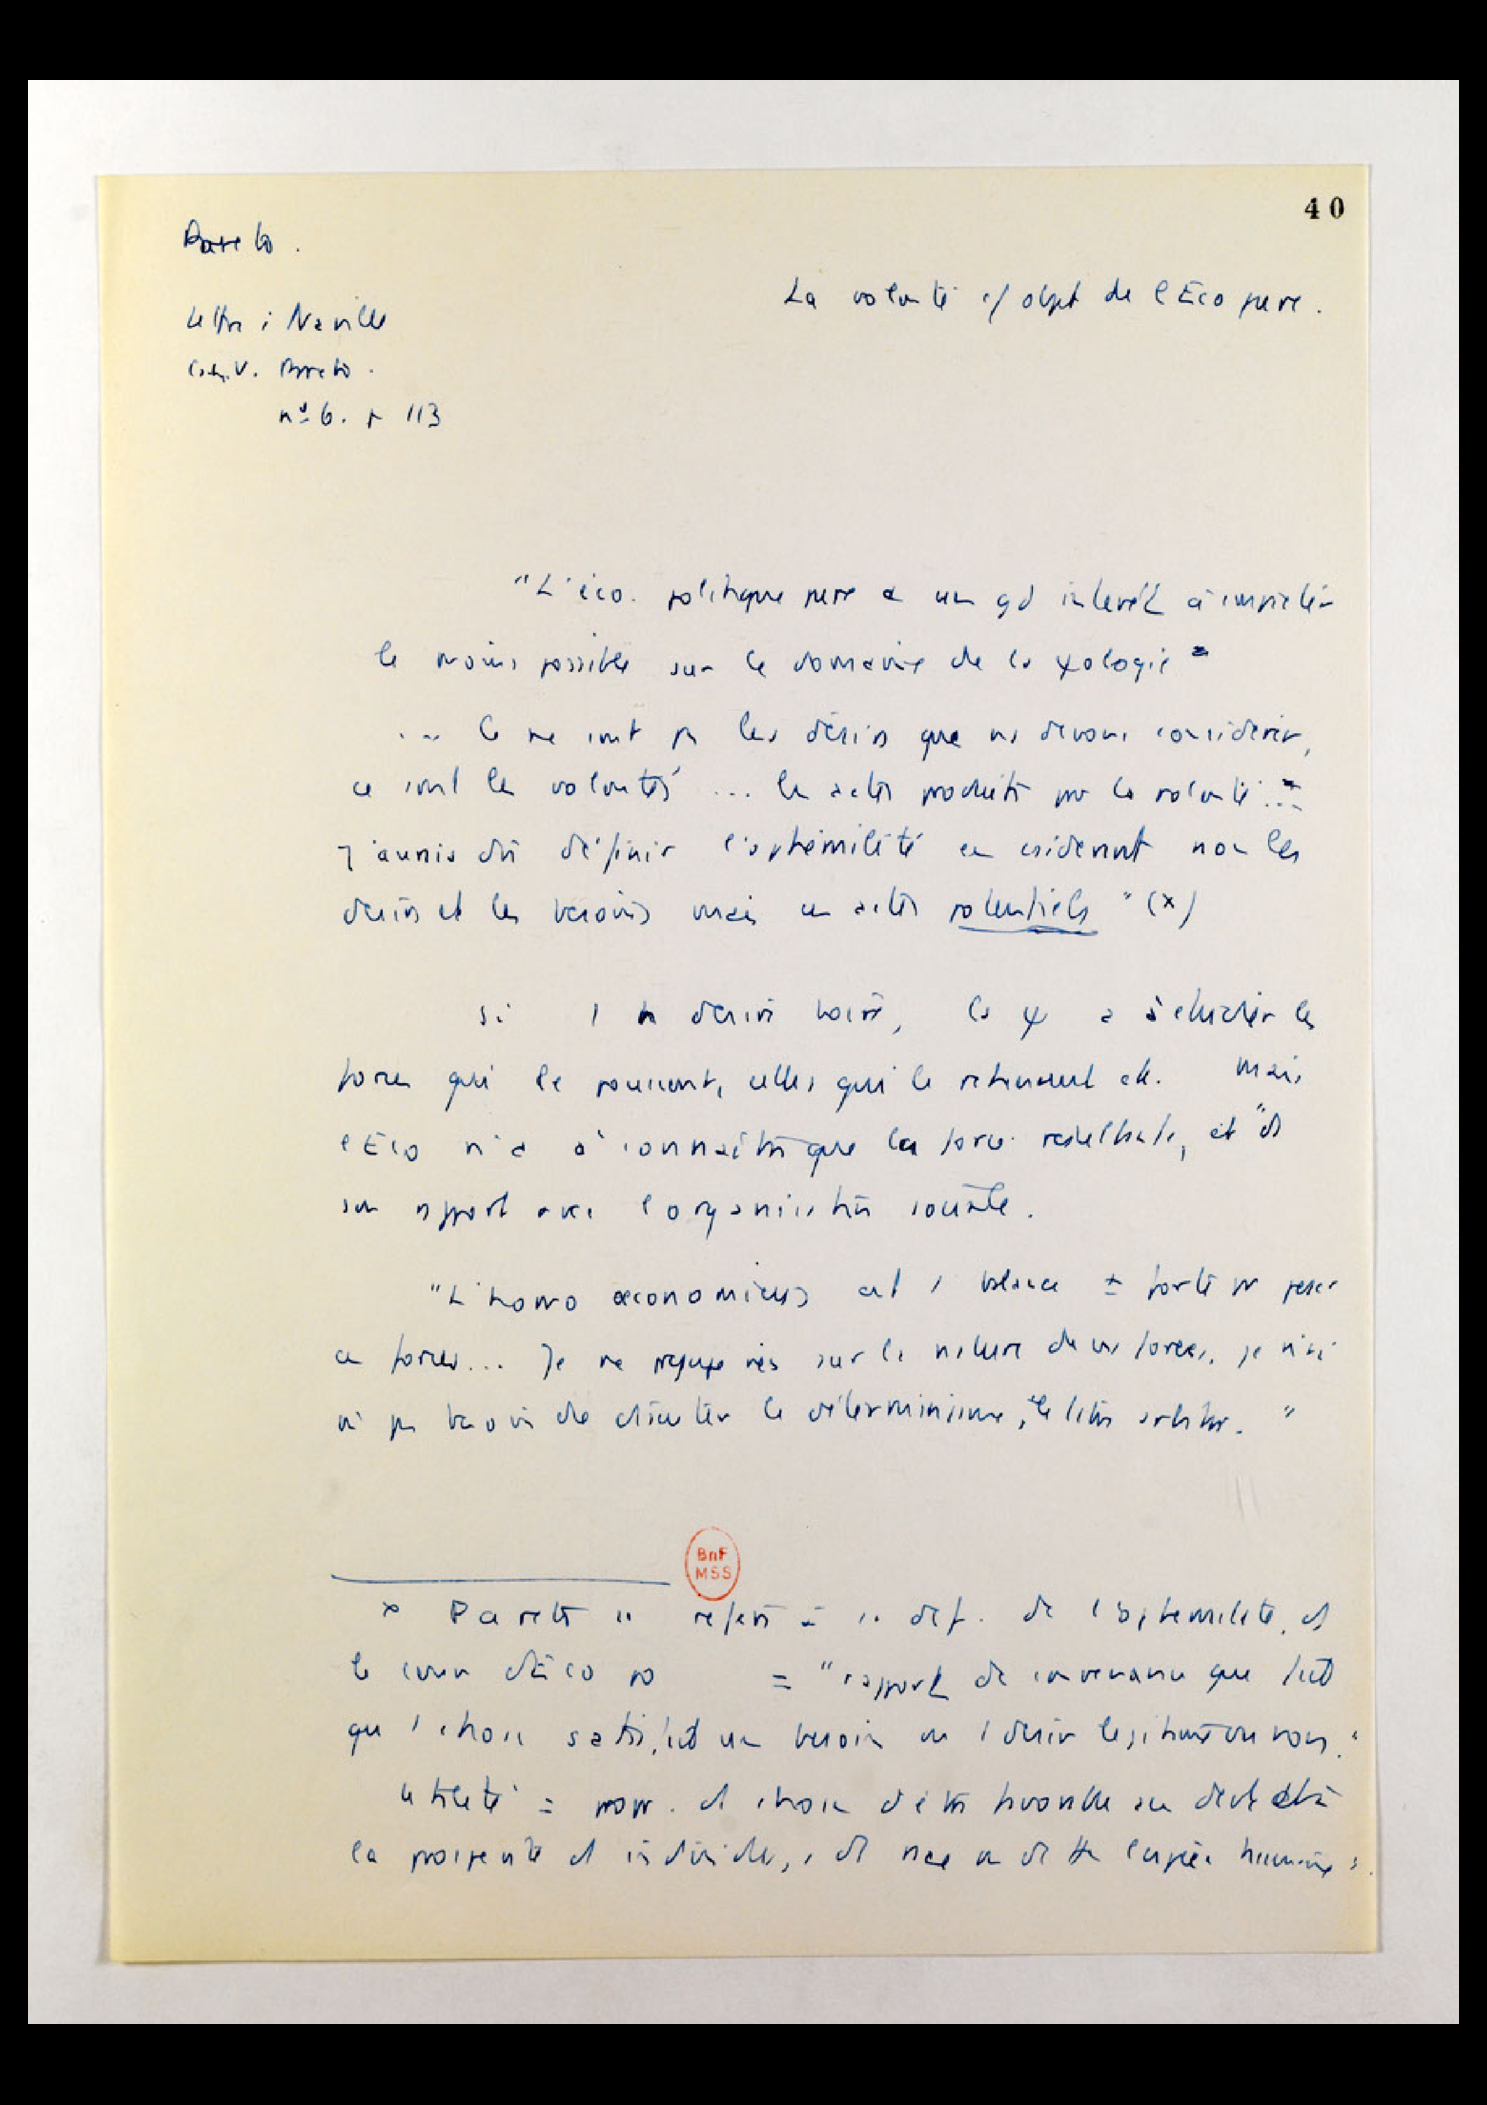 40
Pareto.
La volonté c/ objet de l'Eco pure.
Lettre à Naville
Cah. V. Pareto.
nº 6. p 113
"L'éco. politique pure a un gd intérêt à empiéter
le moins possible sur le domaine de la ψologie"
... Ce ne sont pas les désirs que ns devons considérer,
ce sont les volontés ... les actes produits par la volonté ...
J'aurais dû définir l'ophémilité en considérant non les
désirs et les besoins mais les actes potentiels" (x)
Si 1 h désire boire, la ψ a à étudier les
forces qui le poussent, celles qui le retiennent etc. Mais
l'Eco n'a à connaître que la force résultante, et ds
son rapport avec l'organisation sociale.
"L'homo œconomicus est 1 balance ± forte pr peser
ces forces... Je ne préjuge rien sur la nature de ces forces, je n'ai
pas besoin de discuter le déterminisme, le libre arbitre."
BnF
MSS
x Pareto se réfère à sa déf. de l'ophémilité, ds
le cours d'éco po = "rapport de convenance qui fait
qu'1 chose satisfait un besoin ou 1 désir légitime ou non."
Utilité = propr. d'1 chose d'être favorable au dévt et à
la prospérité d'1 individu, d'1 race ou de tte l'espèce humaine".